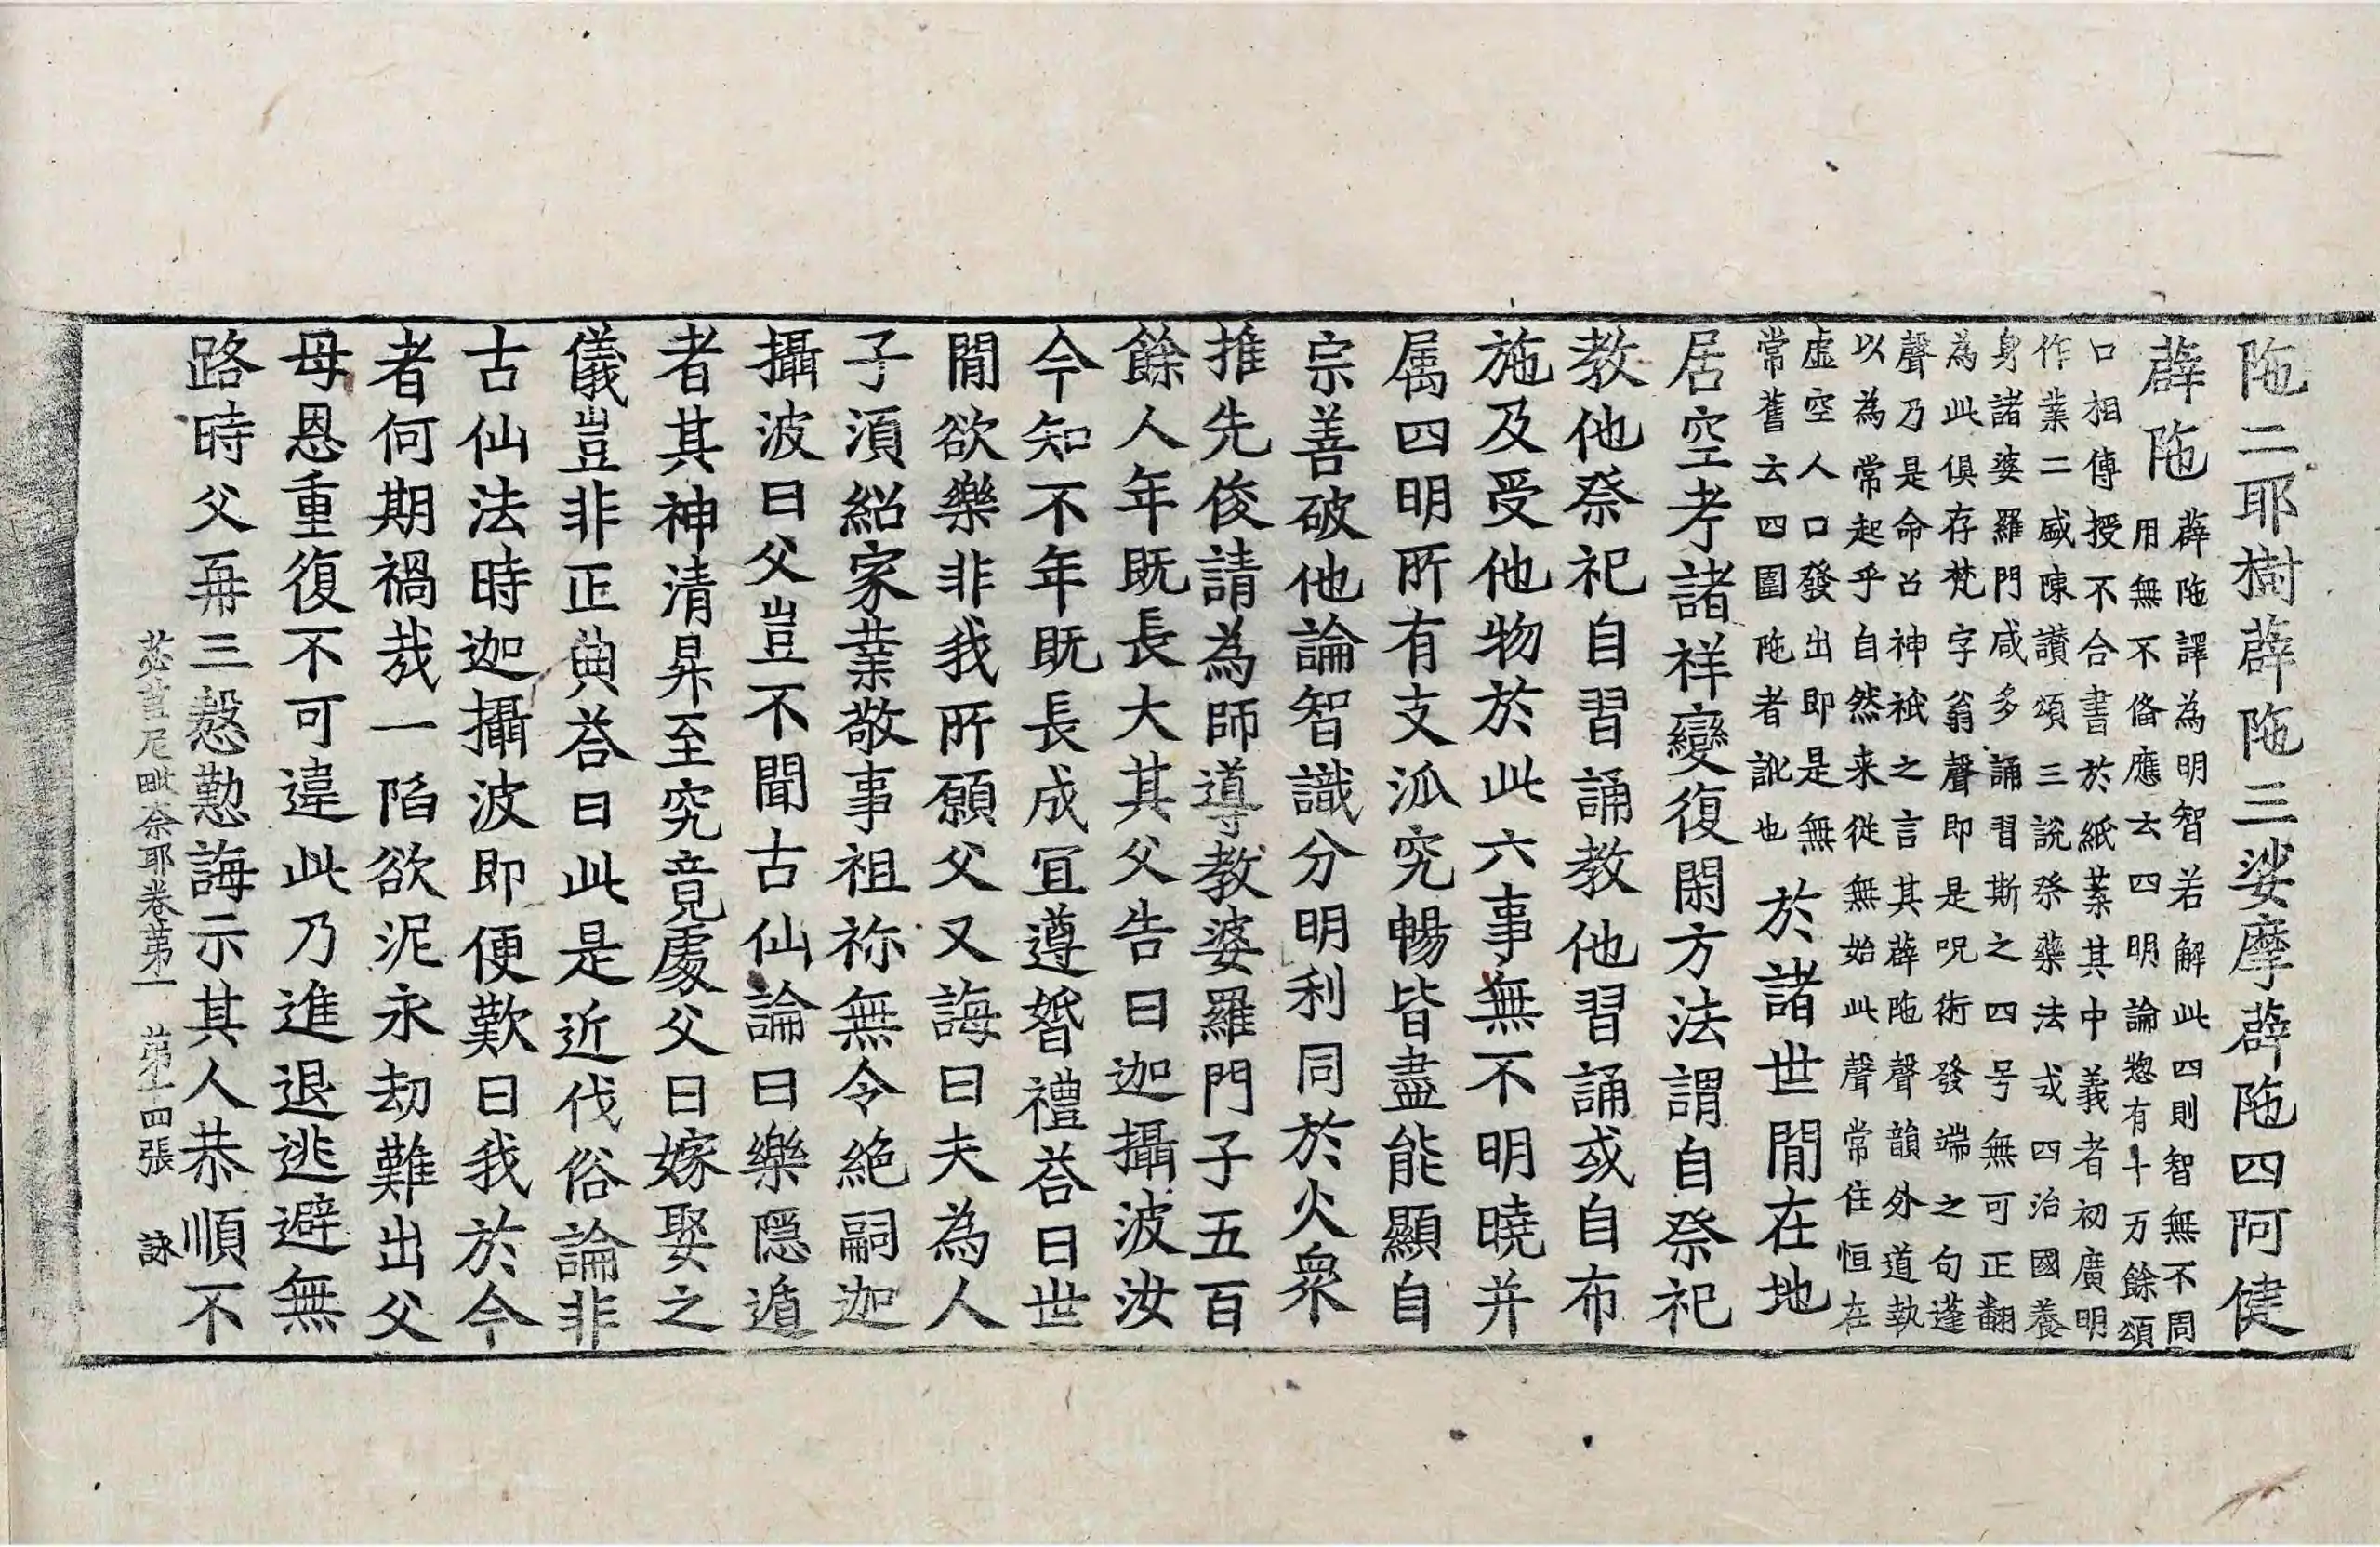 陁二耶樹薜陁三娑摩薜陁四阿健
薜陁
薜陁譯為明智若解此四則智無不周
用無不俻應云四明論惣有十万餘頌
口相傳授不合書於紙葉其中義者初廣明
作業二盛陳讃頌三說祭藥法或四治國養
身諸婆羅門咸多誦習斯之四号無可正翻
為此俱存梵字翁聲即是呪術發端之句蓬
聲乃是命召神祇之言其薜陁聲韻外道執
以為常起乎自然来從無始此聲常住恒在
虛空人口發出即是無
常舊云四圍陁者訛也
於諸世間在地
居空考諸祥變復閑方法謂自祭祀
教他祭祀自習誦教他習誦或自布
施及受他物於此六事無不明曉并
属四明所有支泒究暢皆盡能顯自
宗善破他論智識分明利同於火衆
推先俊請為師導教婆羅門子五百
餘人年既長大其父告曰迦攝波汝
今知不年既長成冝遵婚禮荅曰世
間欲樂非我所願父又誨曰夫為人
子湏紹家業敬事祖祢無令絶嗣迦
攝波曰父豈不聞古仙論曰樂隱遁
者其神清昇至究竟處父曰嫁娶之
儀豈非正典荅曰此是近代俗論非
古仙法時迦攝波即便歎曰我於今
者何期禍哉一陷欲泥永劫難出父
母恩重復不可違此乃進退逃避無
路時父再三慇懃誨示其人恭順不
苾蒭尼毗奈耶卷苐一 苐十四張 詠